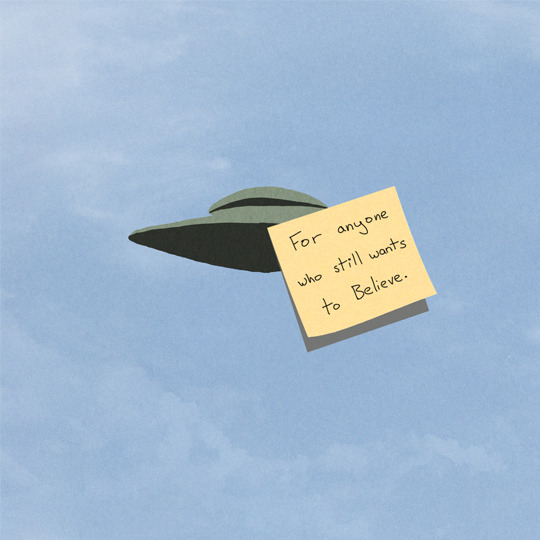 For anyone
who still wants
to Believe.